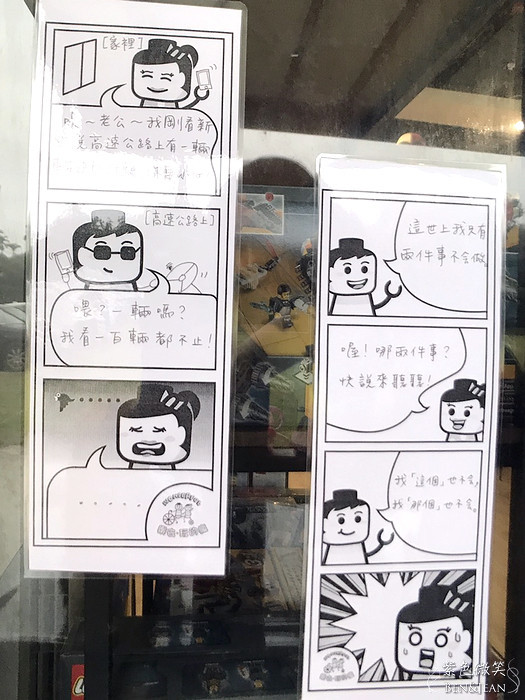 [家裡]
～老公～我剛看新
說高速公路上有一輛
[高速公路上]
喂?一輛嗎?
我看一百輛都不止!
這世上我只有
兩件事不會做
喔!哪兩件事?
快說來聽聽!
我「這個」也不會,
我「那個」也不會。
紫色微笑
BEN&JEAN